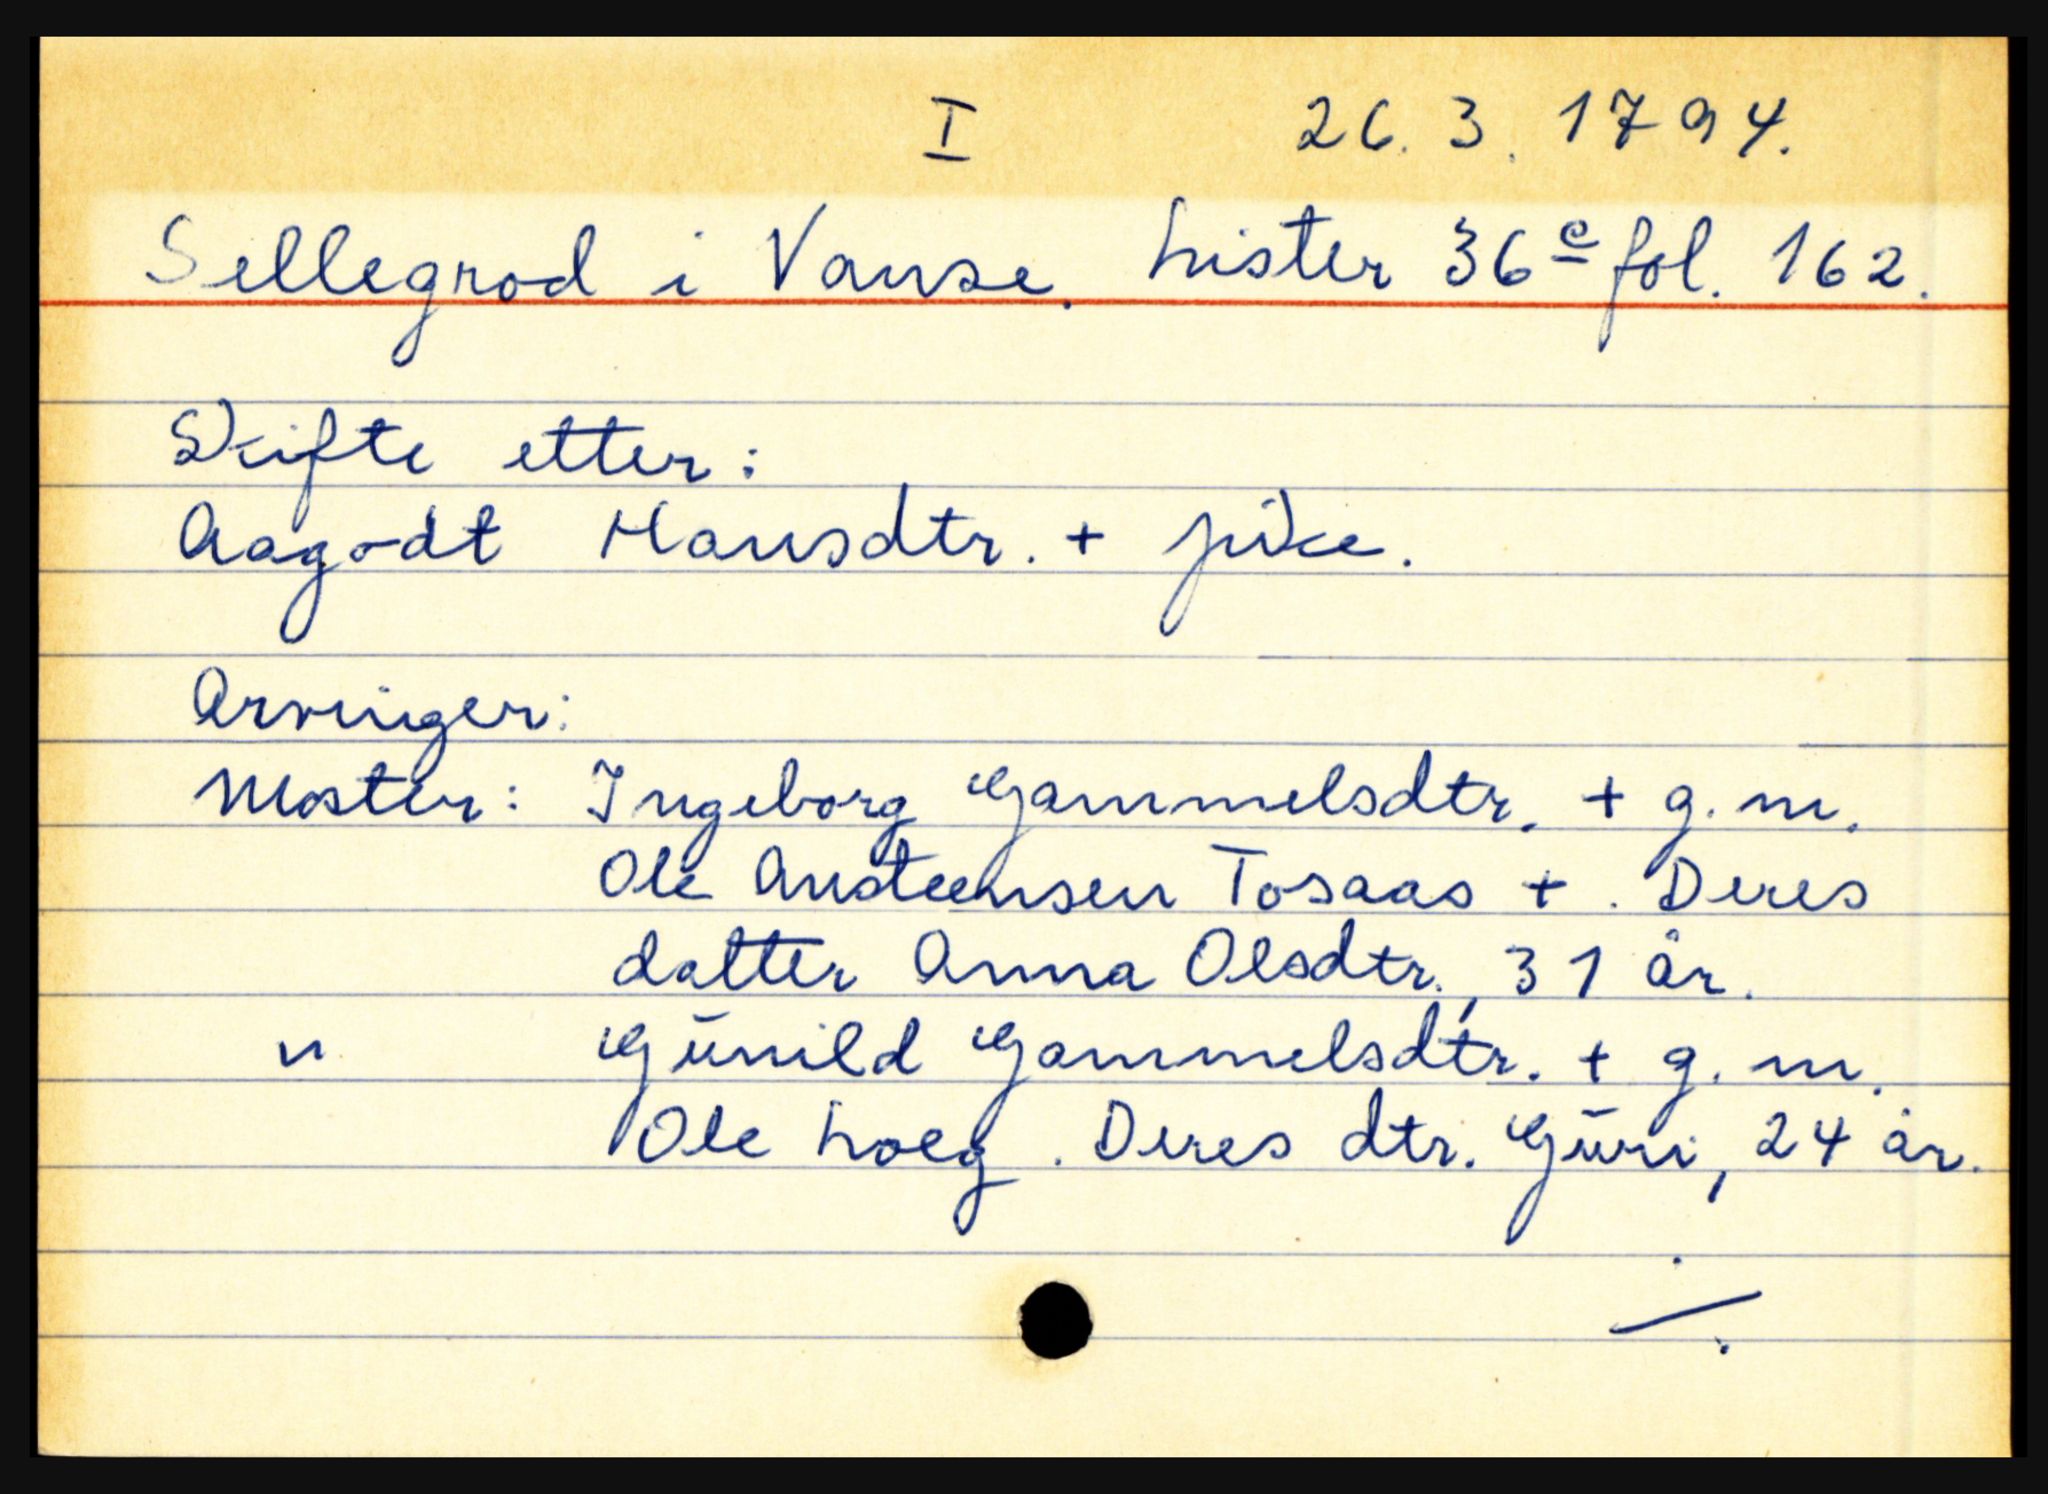 I 26. 3. 1794.
Sellegrod i Vanse. Lister 36 c fol. 162.
Skifte etter:
Aagodt Hansdtr. + pike.
Arvinger:
Moster: Ingeborg Gammelsdtr. + g. m.
Ole Austeensen Tosaas +. Deres
datter Anna Olsdtr., 31 år.
" Gŭnild Gammelsdtr. + g. m.
Ole Loeg. Deres dtr. Gŭri, 24 år.